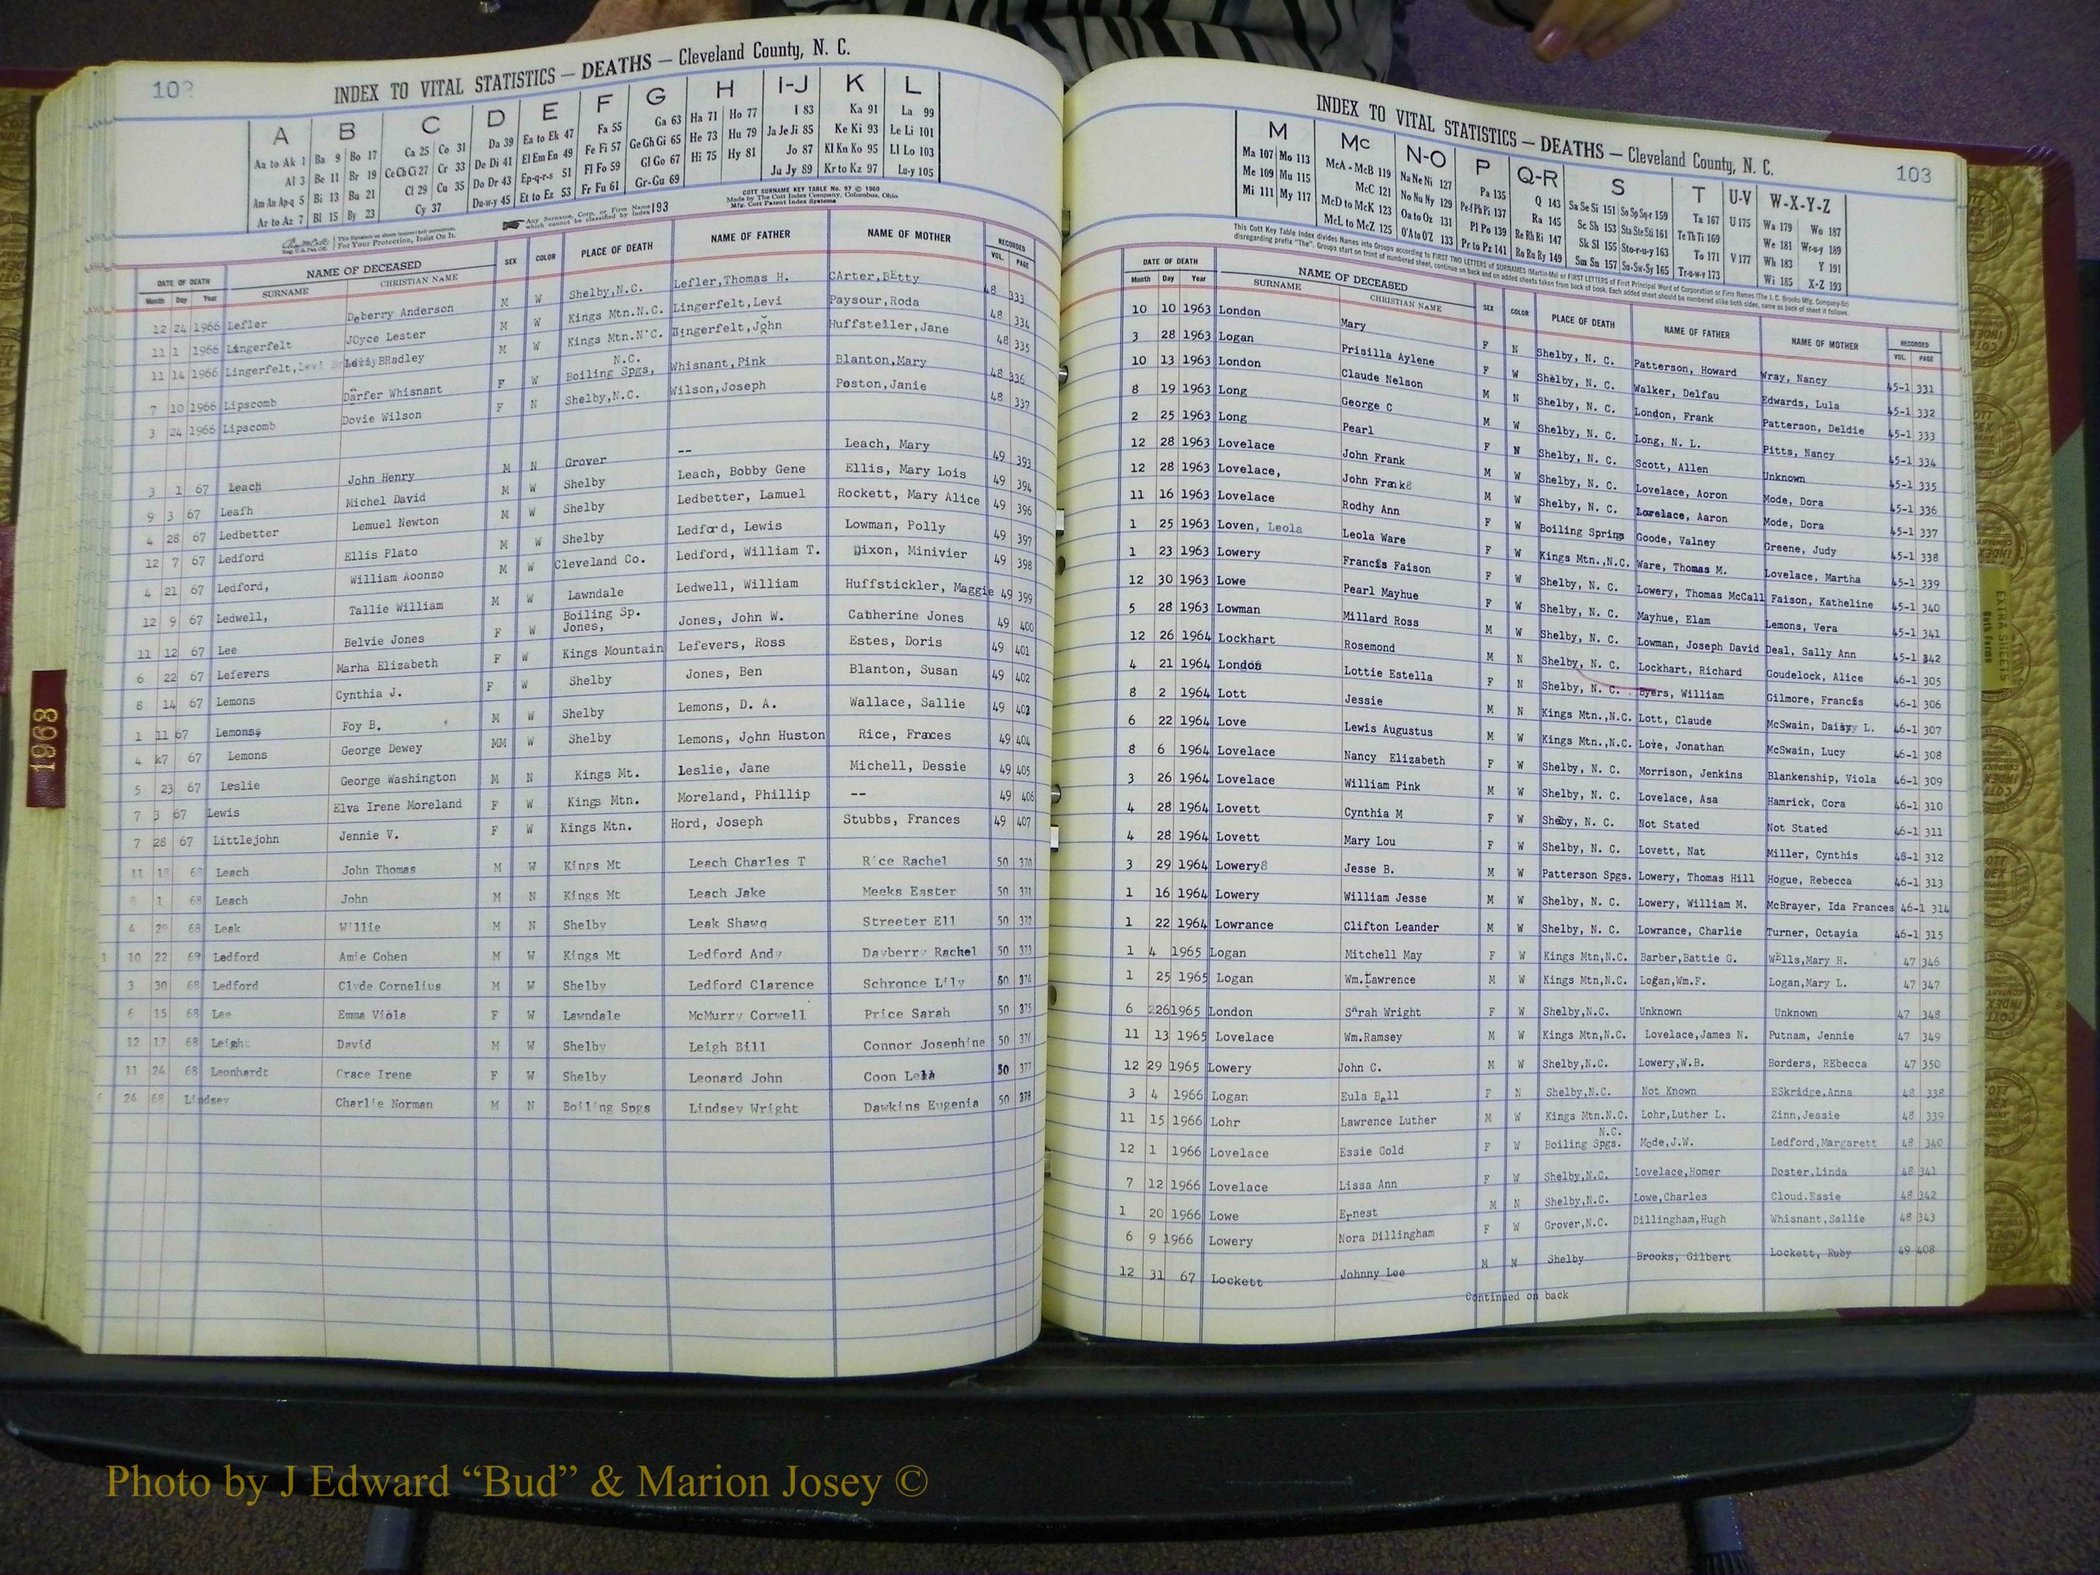 102
INDEX TO VITAL STATISTICS — DEATHS — Cleveland County, N. C.
A B C D E F G H I-J K L
Aa to Ak 1 Ba 9 Bo 17 Ca 25 Co 31 Da 39 Ea to Ek 47 Fa 55 Ga 63 Ha 71 Ho 77 I 83 Ka 91 La 99
Al 3 Be 11 Br 19 Ce Ch Ci 27 Cr 33 De Di 41 El Em En 49 Fe Fi 57 Ge Gh Gi 65 He 73 Hu 79 Ja Je Ji 85 Ke Ki 93 Le Li 101
Am An Ap-q 5 Bi 13 Bu 21 Cl 29 Cu 35 Do Dr 43 Ep-q-r-s 51 Fl Fo 59 Gl Go 67 Hi 75 Hy 81 Jo 87 Kl Kn Ko 95 Ll Lo 103
Ar to Az 7 Bl 15 By 23 Cy 37 Du-w-y 45 Et to Ez 53 Fr Fu 61 Gr-Gu 69 Ju Jy 89 Kr to Kz 97 Lu-y 105
For Your Protection, Insist On It.
Any Surname, Corp. or Firm Name which cannot be classified by Index 193
COTT SURNAME KEY TABLE No. 97 © 1960
Made by The Cott Index Company, Columbus, Ohio
Mfg. Cott Patent Index Systems
DATE OF DEATH NAME OF DECEASED SEX COLOR PLACE OF DEATH NAME OF FATHER NAME OF MOTHER RECORDED
Month Day Year SURNAME CHRISTIAN NAME VOL. PAGE
12 24 1966 Lefler Deberry Anderson M W Shelby,N.C. Lefler,Thomas H. CArter,BEtty 48 333
11 1 1966 Lingerfelt JOyce Lester M W Kings Mtn.N.C. Lingerfelt,Levi Paysour,Roda 48 334
11 14 1966 Lingerfelt, BRadley M W Kings Mtn.N.C. Lingerfelt,John Huffsteller,Jane 48 335
7 10 1966 Lipscomb Darfer Whisnant F W N.C. Boiling Spgs, Whisnant,Pink Blanton,Mary 48 336
3 24 1966 Lipscomb Dovie Wilson F N Shelby,N.C. Wilson,Joseph Poston,Janie 48 337
3 1 67 Leach John Henry M N Grover -- Leach, Mary 49 393
9 3 67 Leafh Michel David M W Shelby Leach, Bobby Gene Ellis, Mary Lois 49 394
4 28 67 Ledbetter Lemuel Newton M W Shelby Ledbetter, Lamuel Rockett, Mary Alice 49 396
12 7 67 Ledford Ellis Plato M W Shelby Ledford, Lewis Lowman, Polly 49 397
4 21 67 Ledford, William Aoonzo M W Cleveland Co. Ledford, William T. Dixon, Minivier 49 398
12 9 67 Ledwell, Tallie William M W Lawndale Ledwell, William Huffstickler, Maggie 49 399
11 12 67 Lee Belvie Jones F W Boiling Sp. Jones, Jones, John W. Catherine Jones 49 400
6 22 67 Lefevers Marha Elizabeth F W Kings Mountain Lefevers, Ross Estes, Doris 49 401
8 14 67 Lemons Cynthia J. F W Shelby Jones, Ben Blanton, Susan 49 402
1 11 67 Lemons, Foy B. M W Shelby Lemons, D. A. Wallace, Sallie 49 403
4 k7 67 Lemons George Dewey MM W Shelby Lemons, John Huston Rice, Frances 49 404
5 23 67 Leslie George Washington M N Kings Mt. Leslie, Jane Michell, Dessie 49 405
7 3 67 Lewis Elva Irene Moreland F W Kings Mtn. Moreland, Phillip -- 49 406
7 28 67 Littlejohn Jennie V. F W Kings Mtn. Hord, Joseph Stubbs, Frances 49 407
11 18 68 Leach John Thomas M W Kings Mt Leach Charles T Rice Rachel 50 370
8 1 68 Leach John M N Kings Mt Leach Jake Meeks Easter 50 371
4 29 68 Leak Willie M N Shelby Leak Shawn Streeter Ell 50 372
10 22 68 Ledford Amie Cohen M W Kings Mt Ledford Andy Dayberry Rachel 50 373
3 30 68 Ledford Clyde Cornelius M W Shelby Ledford Clarence Schronce Lily 50 374
6 15 68 Lee Emma Viola F W Lawndale McMurry Corwell Price Sarah 50 375
12 17 68 Leigh David M W Shelby Leigh Bill Connor Josephine 50 376
11 24 68 Leonhardt Grace Irene F W Shelby Leonard John Coon Lela 50 377
6 24 68 Lindsey Charlie Norman M N Boiling Spgs Lindsey Wright Dawkins Eugenia 50 378
1968
103
INDEX TO VITAL STATISTICS — DEATHS — Cleveland County, N. C.
M Mc N-O P Q-R S T U-V W-X-Y-Z
Ma 107 Mo 113 McA - McB 119 Na Ne Ni 127 Pa 135 Q 143 Sa Se Si 151 So Sp Sq-r 159 Ta 167 U 175 Wa 179 Wo 187
Me 109 Mu 115 McC 121 No Nu Ny 129 Pe-f Ph Pi 137 Ra 145 Sc Sh 153 Sta Ste Sti 161 Te Th Ti 169 We 181 Wr-u-y 189
Mi 111 My 117 McD to McK 123 Oa to Oz 131 Pl Po 139 Re Rh Ri 147 Sk Sl 155 Sto-r-u-y 163 To 171 V 177 Wh 183 Y 191
McL to McZ 125 O'A to O'Z 133 Pr to Pz 141 Ro Ru Ry 149 Sm Sn 157 Su-Sw-Sy 165 Tr-u-w-y 173 Wi 185 X-Z 193
This Cott Key Table Index divides Names into Groups according to FIRST TWO LETTERS of SURNAMES (Martin-Ma) or FIRST LETTERS of First Principal Word of Corporation or Firm Names (The J. C. Brooks Mfg. Company-Br)
disregarding prefix "The". Groups start on front of numbered sheet, continue on back and on added sheets taken from back of book. Each added sheet should be numbered alike both sides, same as back of sheet it follows.
DATE OF DEATH NAME OF DECEASED SEX COLOR PLACE OF DEATH NAME OF FATHER NAME OF MOTHER RECORDED
Month Day Year SURNAME CHRISTIAN NAME VOL. PAGE
10 10 1963 London Mary F N Shelby, N. C. Patterson, Howard Wray, Nancy 45-1 331
3 28 1963 Logan Prisilla Aylene F W Shelby, N. C. Walker, Delfau Edwards, Lula 45-1 332
10 13 1963 London Claude Nelson M N Shelby, N. C. London, Frank Patterson, Deldie 45-1 333
8 19 1963 Long George C M W Shelby, N. C. Long, N. L. Pitts, Nancy 45-1 334
2 25 1963 Long Pearl F N Shelby, N. C. Scott, Allen Unknown 45-1 335
12 28 1963 Lovelace John Frank M W Shelby, N. C. Lovelace, Aoron Mode, Dora 45-1 336
12 28 1963 Lovelace, John Frank M W Shelby, N. C. Lovelace, Aaron Mode, Dora 45-1 337
11 16 1963 Lovelace Rodhy Ann F W Boiling Springs Goode, Valney Greene, Judy 45-1 338
1 25 1963 Loven, Leola Leola Ware F W Kings Mtn.,N.C. Ware, Thomas M. Lovelace, Martha 45-1 339
1 23 1963 Lowery Francis Faison F W Shelby, N. C. Lowery, Thomas McCall Faison, Katheline 45-1 340
12 30 1963 Lowe Pearl Mayhue F W Shelby, N. C. Mayhue, Elam Lemons, Vera 45-1 341
5 28 1963 Lowman Millard Ross M W Shelby, N. C. Lowman, Joseph David Deal, Sally Ann 45-1 342
12 26 1964 Lockhart Rosemond M N Shelby, N. C. Lockhart, Richard Goudelock, Alice 46-1 305
4 21 1964 London Lottie Estella F N Shelby, N. C. Byers, William Gilmore, Francis 46-1 306
8 2 1964 Lott Jessie M N Kings Mtn.,N.C. Lott, Claude McSwain, Daisy L. 46-1 307
6 22 1964 Love Lewis Augustus M W Kings Mtn.,N.C. Love, Jonathan McSwain, Lucy 46-1 308
8 6 1964 Lovelace Nancy Elizabeth F W Shelby, N. C. Morrison, Jenkins Blankenship, Viola 46-1 309
3 26 1964 Lovelace William Pink M W Shelby, N. C. Lovelace, Asa Hamrick, Cora 46-1 310
4 28 1964 Lovett Cynthia M F W Shelby, N. C. Not Stated Not Stated 46-1 311
4 28 1964 Lovett Mary Lou F W Shelby, N. C. Lovett, Nat Miller, Cynthis 46-1 312
3 29 1964 Lowery Jesse B. M W Patterson Spgs. Lowery, Thomas Hill Hogue, Rebecca 46-1 313
1 16 1964 Lowery William Jesse M W Shelby, N. C. Lowery, William M. McBrayer, Ida Frances 46-1 314
1 22 1964 Lowrance Clifton Leander M W Shelby, N. C. Lowrance, Charlie Turner, Octayia 46-1 315
1 4 1965 Logan Mitchell May F W Kings Mtn,N.C. Barber,Battie G. WElls,Mary H. 47 346
1 25 1965 Logan Wm.Lawrence M W Kings Mtn,N.C. Logan,Wm.F. Logan,Mary L. 47 347
6 226 1965 London SArah Wright F W Shelby,N.C. Unknown Unknown 47 348
11 13 1965 Lovelace Wm.Ramsey M W Kings Mtn,N.C. Lovelace,James N. Putnam, Jennie 47 349
12 29 1965 Lowery John C. M W Shelby,N.C. Lowery,W.B. Borders, REbecca 47 350
3 4 1966 Logan Eula Bell F N Shelby,N.C. Not Known ESkridge.Anna 48 338
11 15 1966 Lohr Lawrence Luther M W Kings Mtn.N.C. Lohr,Luther L. Zinn,Jessie 48 339
12 1 1966 Lovelace Essie Gold F W N.C. Boiling Spgs. Mode,J.W. Ledford,Margarett 48 340
7 12 1966 Lovelace Lissa Ann F W Shelby,N.C. Lovelace,Homer Doster,Linda 48 341
1 20 1966 Lowe Ernest M N Shelby,N.C. Lowe,Charles Cloud.Essie 48 342
6 9 1966 Lowery Nora Dillingham F W Grover,N.C. Dillingham,Hugh Whisnant,Sallie 48 343
12 31 67 Lockett Johnny Lee M N Shelby Brooks, Gilbert Lockett, Ruby 49 408
Continued on back
EXTRA SHEETS
Photo by J Edward “Bud” & Marion Josey ©